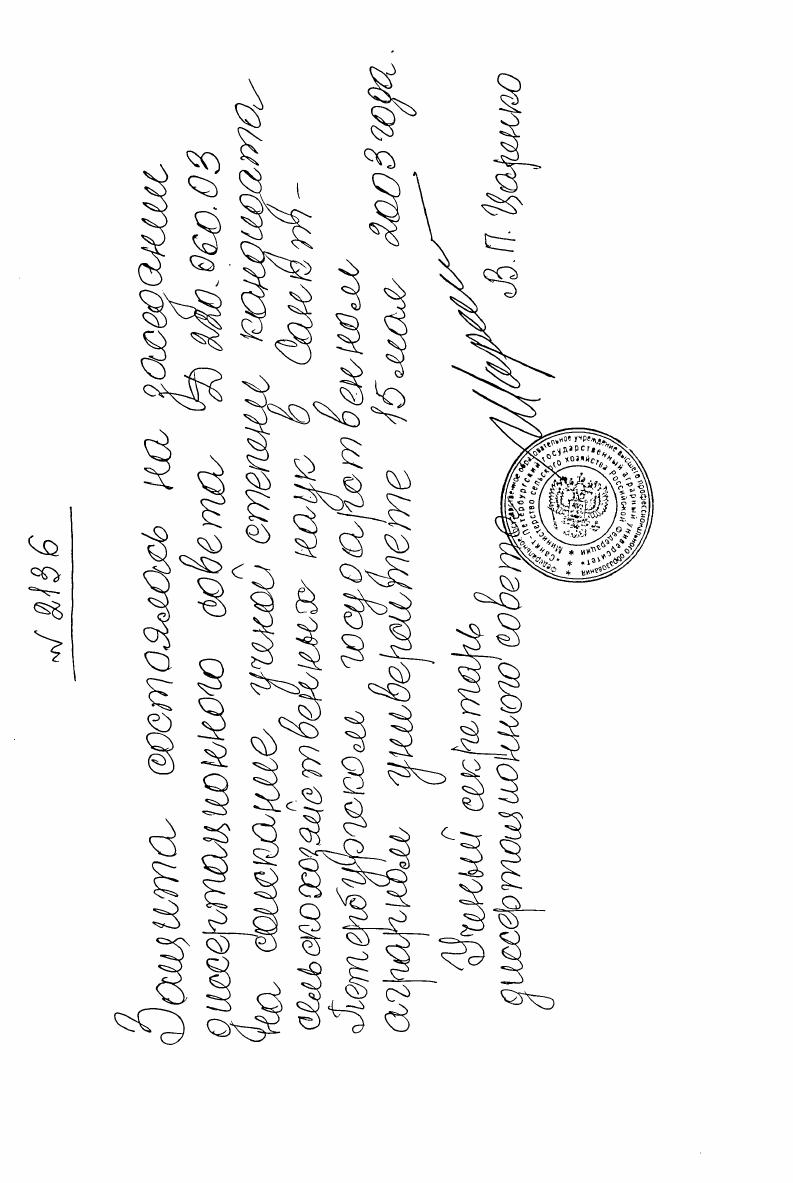 № 2136
Защита состоялась на заседании
диссертационного совета Д 220.060.03
на соискание ученой степени кандидата
сельскохозяйственных наук в Санкт-
Петербургском государственном
аграрном университете 15 мая 2003 года.
Ученый секретарь
диссертационного совета
В.П. Царенко
Федеральное государственное образовательное учреждение высшего профессионального образования
Санкт-Петербургский государственный аграрный университет
Министерство сельского хозяйства Российской Федерации